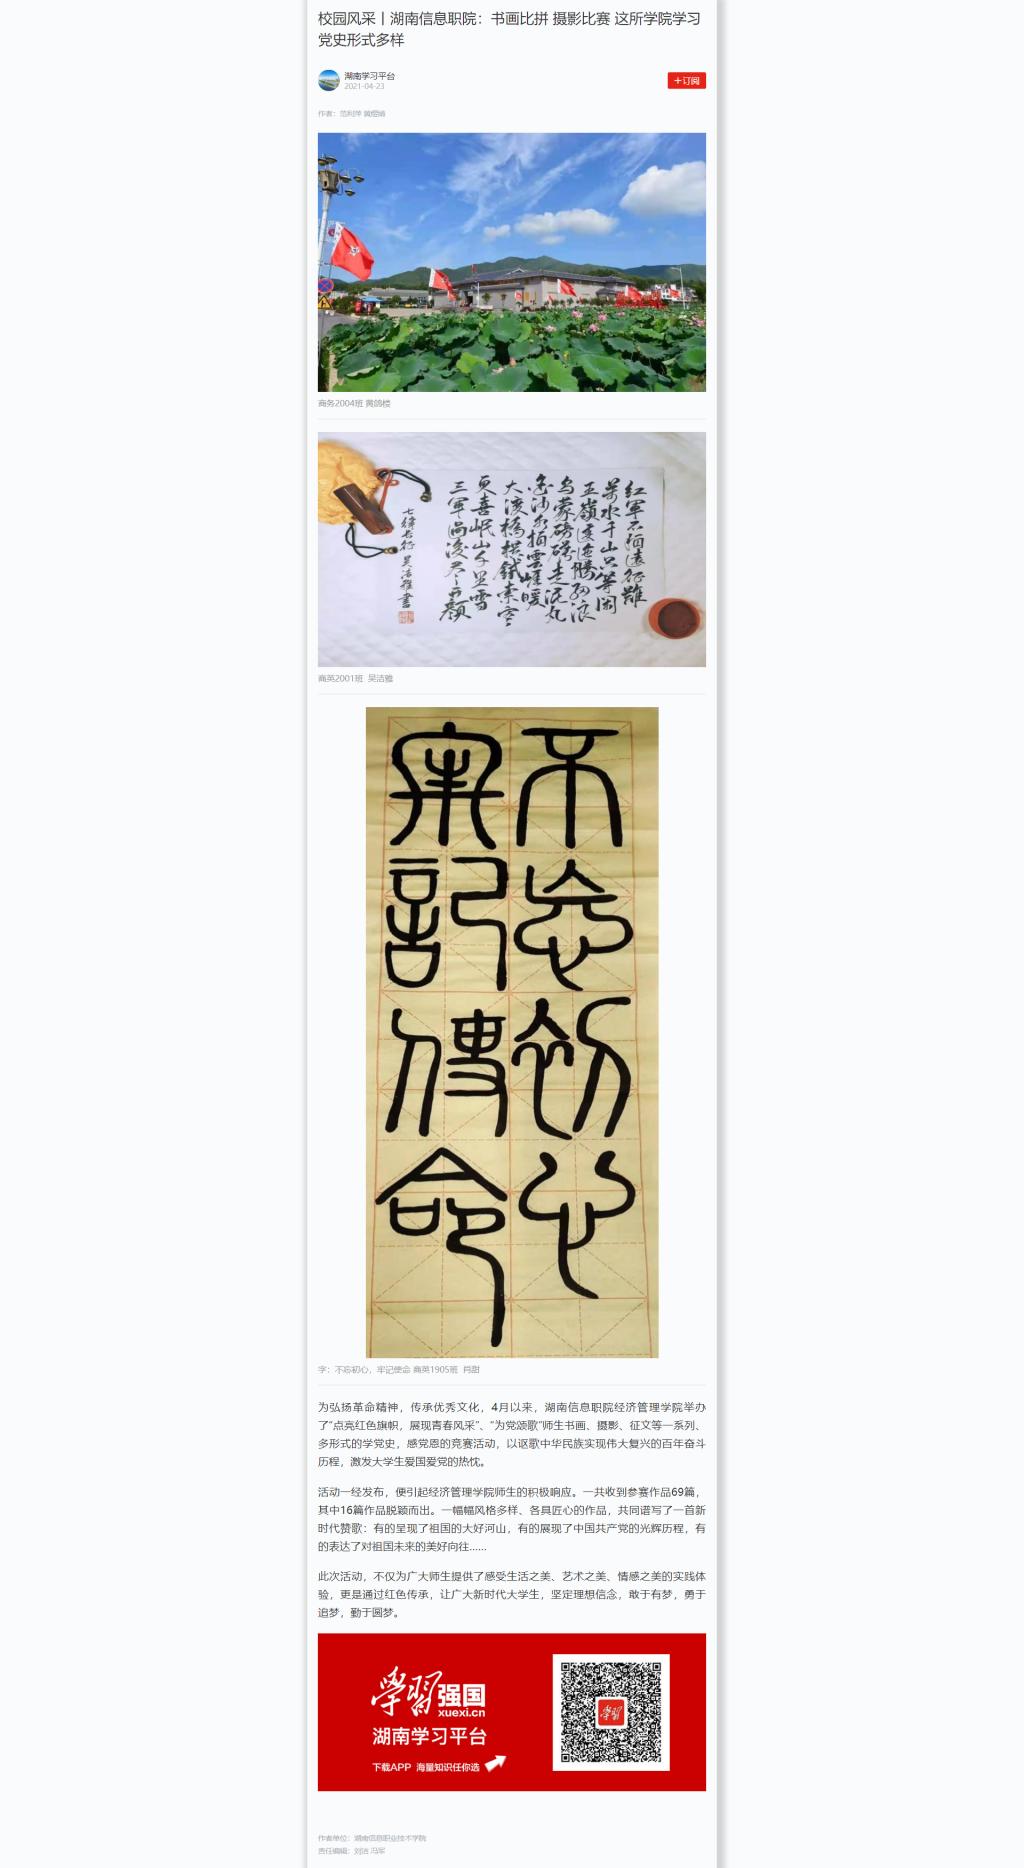 校园风采丨湖南信息职院：书画比拼 摄影比赛 这所学院学习
党史形式多样
湖南学习平台
2021-04-23
+订阅
商务2004班 黄鸽楼
红军不怕远征难
万水千山只等闲
五嶺逶迤腾细浪
乌蒙磅礴走泥丸
金沙水拍雲崖暖
大渡橋横鐵索寒
更喜岷山千里雪
三軍過後尽开颜
七律长征 吴洁雅書
商英2001班 吴洁雅
不忘初心
牢記使命
字：不忘初心，牢记使命 商英1905班 肖甜
为弘扬革命精神，传承优秀文化，4月以来，湖南信息职院经济管理学院举办
了“点亮红色旗帜，展现青春风采”、“为党颂歌”师生书画、摄影、征文等一系列、
多形式的学党史，感党恩的竞赛活动，以讴歌中华民族实现伟大复兴的百年奋斗
历程，激发大学生爱国爱党的热忱。
活动一经发布，便引起经济管理学院师生的积极响应。一共收到参赛作品69篇，
其中16篇作品脱颖而出。一幅幅风格多样、各具匠心的作品，共同谱写了一首新
时代赞歌：有的呈现了祖国的大好河山，有的展现了中国共产党的光辉历程，有
的表达了对祖国未来的美好向往……
此次活动，不仅为广大师生提供了感受生活之美、艺术之美、情感之美的实践体
验，更是通过红色传承，让广大新时代大学生，坚定理想信念，敢于有梦，勇于
追梦，勤于圆梦。
学習强国
xuexi.cn
湖南学习平台
下载APP 海量知识任你选
学習
作者单位：湖南信息职业技术学院
责任编辑：刘洁 冯军